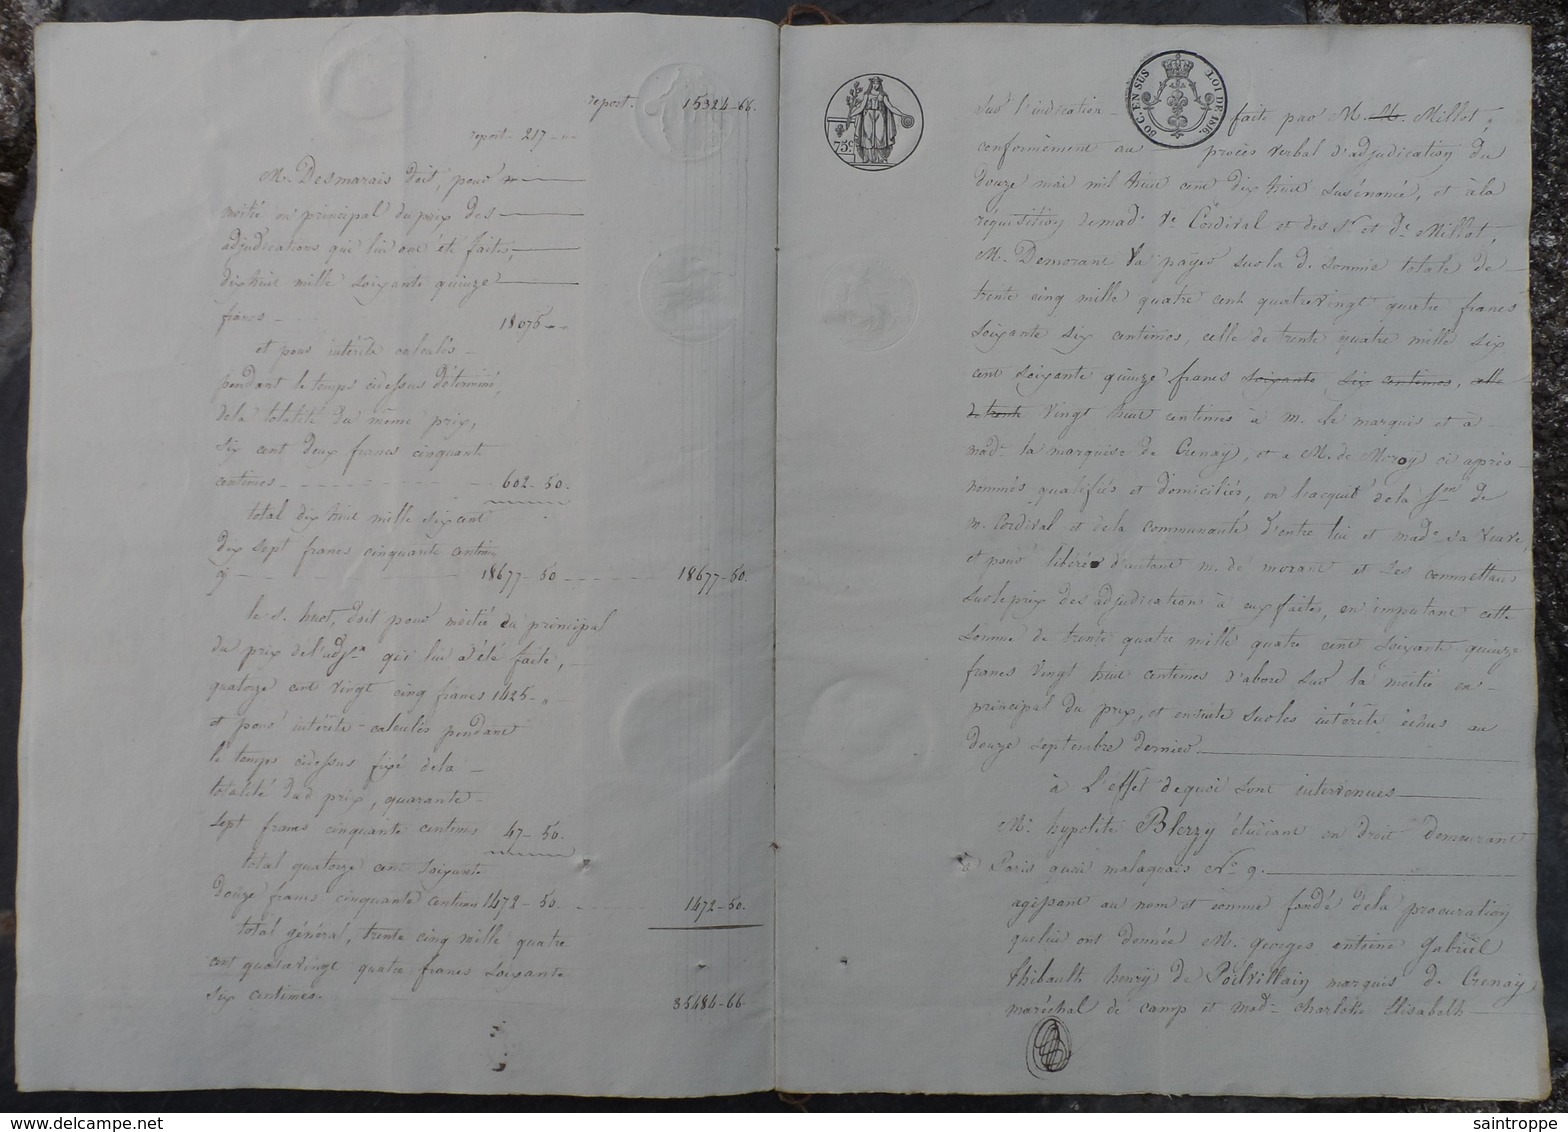 report - 15324-66.
report - 217 - "
M. Desmarais doit, pour
moitié en principal du prix des
adjudications qui lui ont été faites,
dix huit mille soixante quinze
francs - 18075 - "
et pour intérêts calculés -
pendant le temps cidessus déterminé,
dela totalité du même prix,
six cent deux francs cinquante
centimes - 602-50.
total dix huit mille six cent
dix sept francs cinquante centimes
18677-50 - 18677-50.
le s. huet, doit pour moitié du principal
du prix del'adjon qui lui a été faite, -
quatorze cent vingt cinq francs 1425 - "
et pour intérêts - calculés pendant
le temps cidessus fixé dela -
totalité dud. prix, quarante -
sept francs cinquante centimes 47-50.
total quatorze cent soixante
douze francs cinquante centimes 1472-50. - 1472-50.
total général, trente cinq mille quatre
cent quatrevingt quatre francs soixante
six centimes. 35484-66.
75c.
50 C. EN SUS LOI DE 1816.
sur l'indication - fait par M. Millot,
conformément au procès verbal d'adjudication du
douze mai mil huit cent dix huit susénoncé, et à la
réquisition de mad. Ve. Cordival et des Sr. et De. Millot,
M. Demorant va payer sur la d. somme totale de -
trente cinq mille quatre cent quatrevingt quatre francs
soixante six centimes, celle de trente quatre mille six
cent soixante quinze francs soixante six centimes, celle
de trente vingt huit centimes à M. le marquis et à -
made. la marquise de Crenay, et à M. de Mezoy ci après -
nommés qualifiés et domiciliés, en l'acquit de la son de
M. Cordival et dela communauté d'entre lui et made. sa veuve
et pour libérer d'autant M. de morant et ses commettans
sur le prix des adjudications à eux faites, en imputant cette
somme de trente quatre mille quatre cent soixante quinze
francs vingt huit centimes d'abord sur la moitié en -
principal du prix, et ensuite sur les intérêts échus au
douze septembre dernier
à l'effet de quoi sont intervenues
Mr. hypolite Blezzy étudiant en droit demeurant
à Paris quai malaquais No. 9.
agissant au nom et comme fondé dela procuration
que lui ont donnée M. georges antoine Gabriel
thibault henry de Poilvillain marquis de Crenay,
maréchal de camp et made. charlotte Elisabeth -
saintroppe
delcampe.net